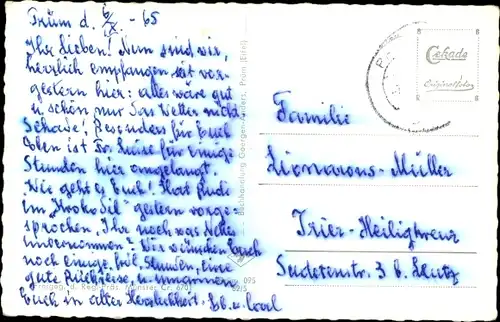 Prüm d. 6/IX. - 65
Ihr Lieben! Nun sind wir,
herzlich empfangen seit vor-
gestern hier: alles wäre gut
u schön nur das Wetter nicht
Schade, besonders für Euch
Eben ist Fr. Luise für einige
Stunden hier angelangt.
Wie geht es Euch? Hat Rudi
im "Krokodil" gestern vorge-
sprochen, Ihr noch was
unternommen? Wir wünschen Euch
noch einige Stunden, eine
gute Rückreise u. umarmen
Euch in alter Herzlichkeit.
Buchhandlung Prüm (Eifel)
095
Cekade
Originalfoto
Familie
Müller
Trier-Heiligkreuz
Sudetenstr. 3